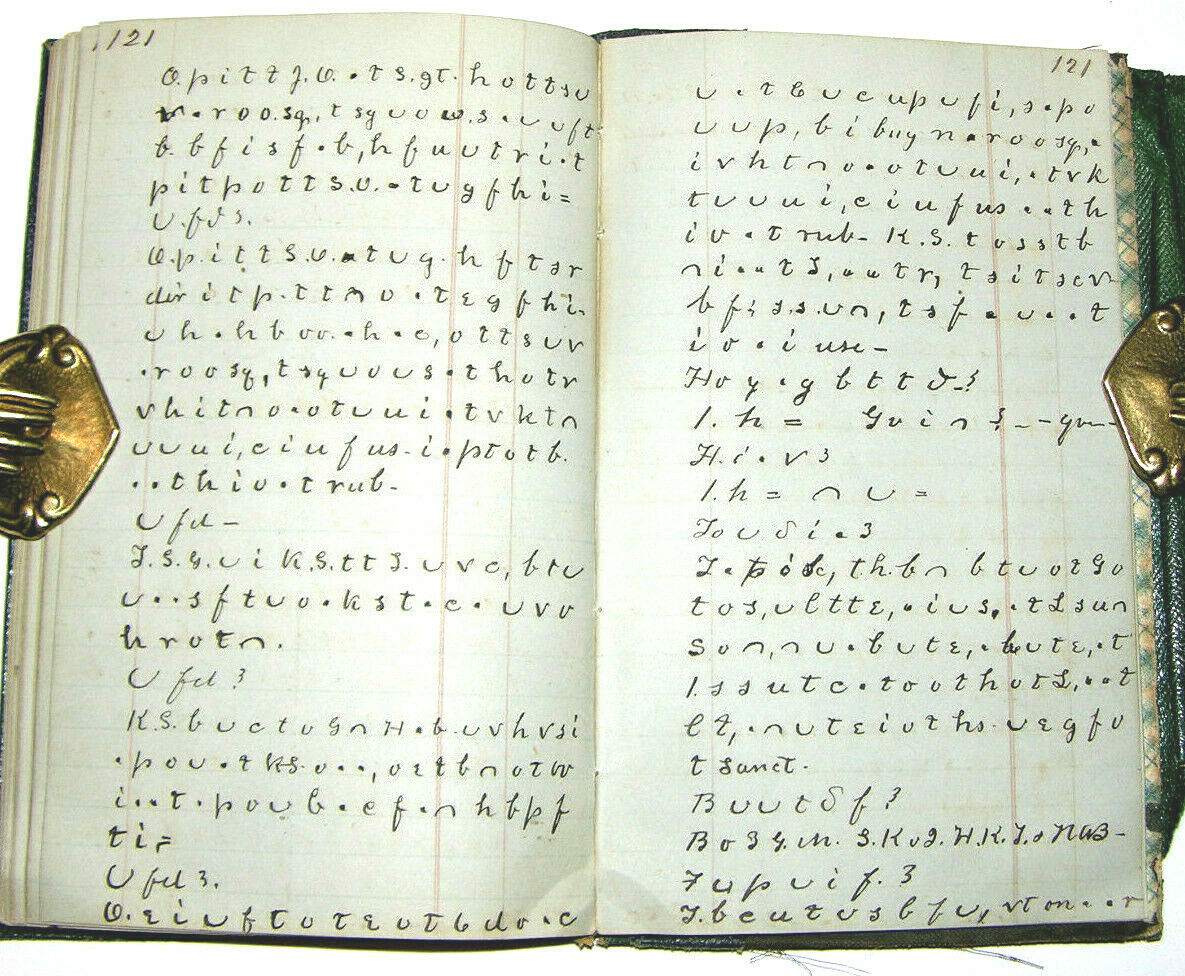 121
O. p i t t J. O. • t S. gt. h o t t s u
r • r o o. sq, t sq u o w. s • u u f t
b. b f i s f • b, h f u u t r i • t
p i t p o t t S. O. • t u g f h i =
U. f d 3.
O. p. i t t S. O. • t u g. h f t s r
i t p. t t n o • t ε g f h i.
u h • h b o o. • h • c, o t t s u r
• r o o sq, t s q u o u s • t h o t r
v h i t n o • o t u u i • t v k t n
u u u i, c i u f u s. i • p t o t b.
• • t h i o • t r u b -
U f d -
J. S. G. u i K. S. t t J. u v c, b t u
u • • s f t u o • k s t • c • u v o
h r o t n.
U f d ?
K. S. b u c t o G n H • b • u v h v s i
• p o u • t K S • o • •, o ε t b n o t o o
i • • t • p o u b • c f • n h b p f
t i, =
U f d 3.
O. ε i u f t o t ε o t b d o • c
121
u • t b u c u p u f i, s • p o
u u p, b i b u y n • r o o s q, •
i v h t n o • o t u u i, • t v k
t u u u i, c i u f u s • • t h
i o • t r u b - K. S. t o s s t b
n i • • t S, • • t r, t s i t s c v
b f i s. s. u n, t s f • u • • t
i o • i u s e -
H o y • g b t t d - ?
1. h = G u i n ? - - g u - -
H. i • v 3
1. h = n u =
J o u δ i • 3
J • p o s c, t. h. b n b t u o t G o
t o s, u l t t ε, • i u s, • t L s u n
S o n, n u • b u t ε, • b u t ε, • t
1. s s u t c • t o o t h o t L, • • t
l t, • n u t ε i o t h s • u ε g f o
t s a n c t •
B u u t δ f ?
B o S G. M. S. K o J. H. K. J. o N W B -
J u p u i f. 3
J. b c u t o s b f u, v t o n • • r